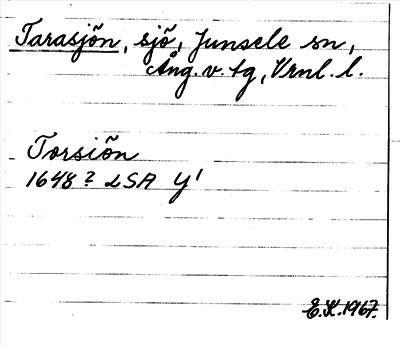 Tarasjön, sjö, Junsele sn,
Ång. v. tg, Vrnl. l.
Torsiön
1648? LSA Y¹
E.K. 1967.